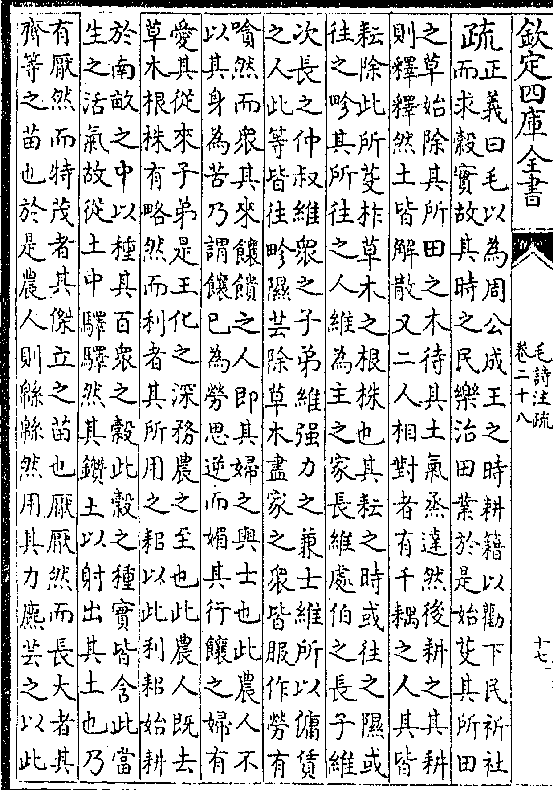 欽定四庫全書
毛詩注疏
卷二十八
十七
疏
正義曰毛以為周公成王之時耕籍以勸下民祈社
而求穀實故其時之民樂治田業於是始芟其所田
之草始除其所田之木待其土氣烝達然後耕之其耕
則釋釋然土皆解散又二人相對者有千耦之人其皆
耘除此所芟柞草木之根株也其耘之時或往之隰或
往之畛其所往之人維為主之家長維處伯之長子維
次長之仲叔維衆之子弟維强力之兼士維所以傭賃
之人此等皆往畛隰芸除草木盡家之衆皆服作勞有
嗿然而衆其來饟饋之人即其婦之與士也此農人不
以其身為苦乃謂饟已為勞思逆而媚其行饟之婦有
愛其從來子弟是王化之深務農之至也此農人既去
草木根株有略然而利者其所用之耜以此利耜始耕
於南畝之中以種其百衆之穀此穀之種實皆含此當
生之活氣故從土中驛驛然其鑽土以射出其土也乃
有厭然而特茂者其傑立之苗也厭厭然而長大者其
齊等之苗也於是農人則緜緜然用其力麃芸之以此